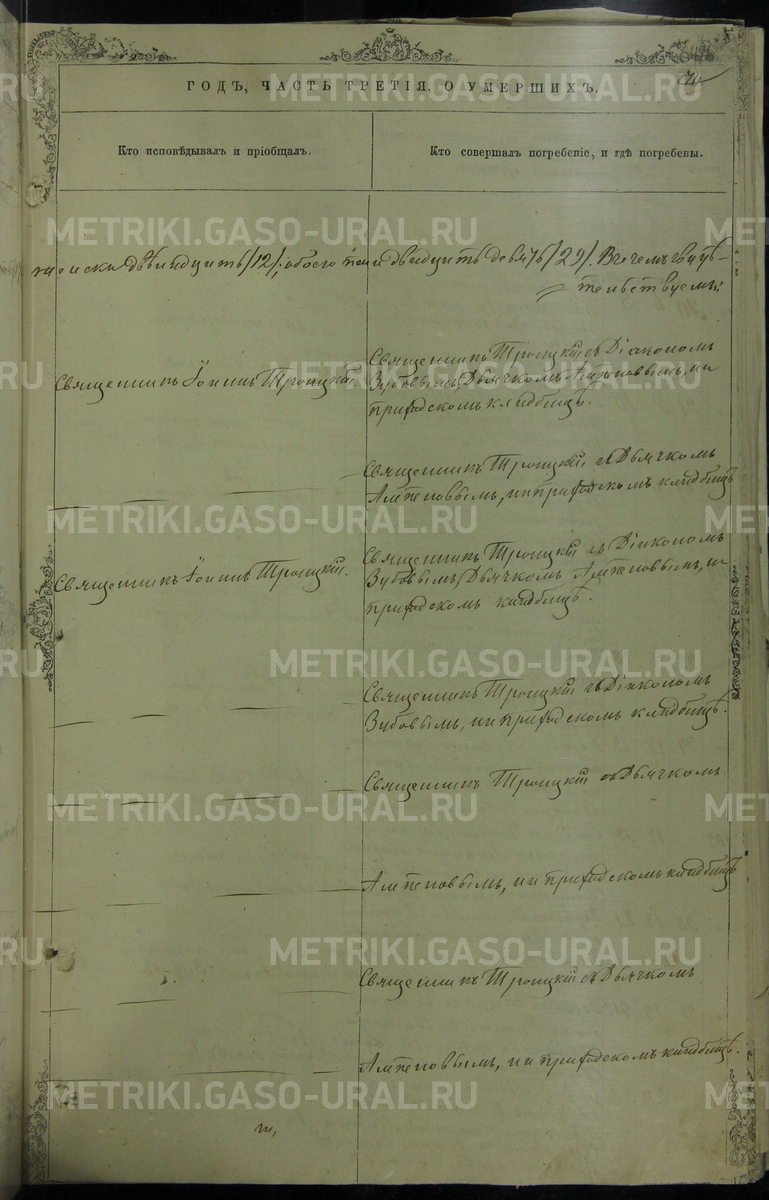 ГОДЪ, ЧАСТЬ ТРЕТІЯ, О УМЕРШИХЪ.
Кто исповѣдывалъ и пріобщалъ.
Кто совершалъ погребеніе, и гдѣ погребены.
женска двѣнадцать /12/, обоего пола двадцать девять /29/. Въ чемъ свидѣ-
тельствуемъ:
Священникъ Іоаннъ Троицкій.
Священникъ Троицкій съ Діакономъ
Зубовымъ, Дьячкомъ, на
приходскомъ кладбищѣ.
Священникъ Троицкій съ Дьячкомъ
на приходскомъ кладбищѣ
Священникъ Іоаннъ Троицкій.
Священникъ Троицкій съ Діакономъ
Зубовымъ, Дьячкомъ, на
приходскомъ кладбищѣ.
Священникъ Троицкій съ Діакономъ
Зубовымъ, на приходскомъ кладбищѣ.
Священникъ Троицкій съ Дьячкомъ
на приходскомъ кладбищѣ
Священникъ Троицкій съ Дьячкомъ
на приходскомъ кладбищѣ.
METRIKI.GASO-URAL.RU